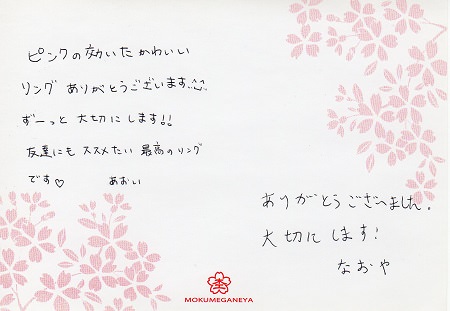 ピンクの効いたかわいい
リング ありがとうございます
ずーっと 大切にします!!
友達にも ススメたい 最高のリング
です♡ あおい
ありがとうございました。
大切にします!
なおや
MOKUMEGANEYA